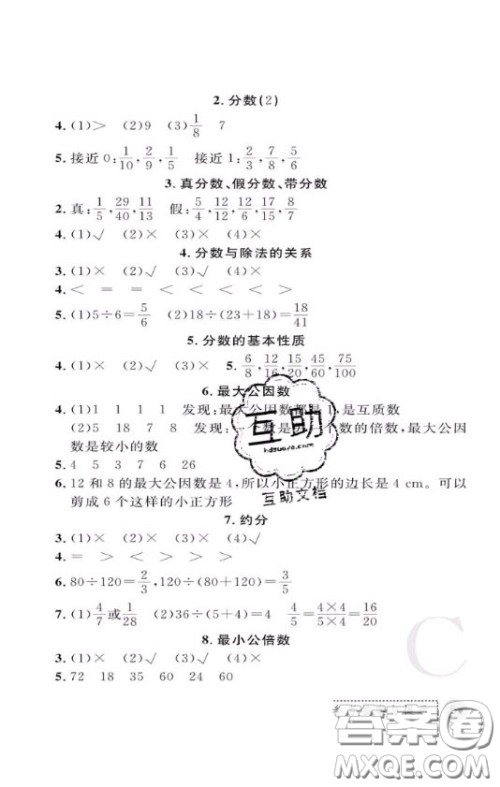 2. 分数(2)
4. (1)> (2)9 (3)1/8 7
5. 接近0:1/10,2/9,1/5 接近1:2/3,7/8,5/6
3. 真分数、假分数、带分数
2. 真:1/5,29/40,11/13 假:5/4,12/12,12/6,17/15,8/7
4. (1)√ (2)× (3)× (4)×
4. 分数与除法的关系
3. (1)× (2)√ (3)√ (4)×
4. < = = < < < < >
5. (1)5÷6=5/6 (2)18÷(23+18)=18/41
5. 分数的基本性质
4. (1)× (2)√ (3)× 5. 6/8,12/16,15/20,45/60,75/100
6. 最大公因数
4. (1)1 1 1 1 发现:最大公因数都是1,是互质数
(2)5 18 7 8 发现:一个数是另一个数的倍数,最大公因
数是较小的数
5. 4 5 3 7 6 26
6. 12和8的最大公因数是4,所以小正方形的边长是4 cm。可以
剪成6个这样的小正方形
互助
互助文档
7. 约分
3. (1)× (2)× (3)× (4)√
4. = > < > > <
6. 80÷120=2/3,120÷(80+120)=3/5
7. (1)4/7或1/28 (2)36÷(5+4)=4 4/5=4×4/5×4=16/20
8. 最小公倍数
3. (1)× (2)√ (3)√ (4)×
5. 72 18 35 60 24 60
C
答案圈
MXQE.COM